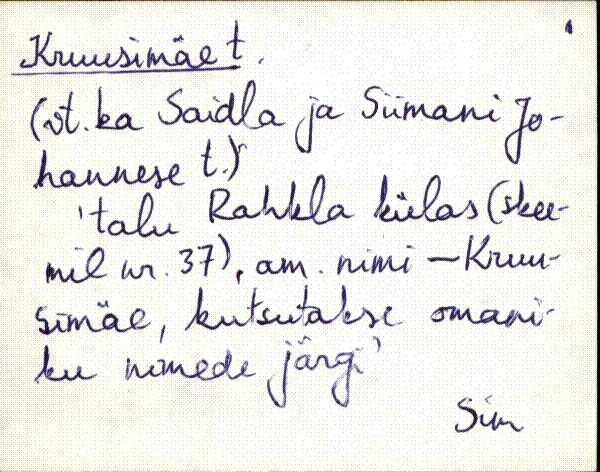 Kruusimäe t.
(vt. ka Saidla ja Siimani Jo-
hannese t.)
'talu Rahkla külas (skee-
mil nr. 37), am. nimi – Kruu-
simäe, kutsutakse omani-
ku nimede järgi'
Sim